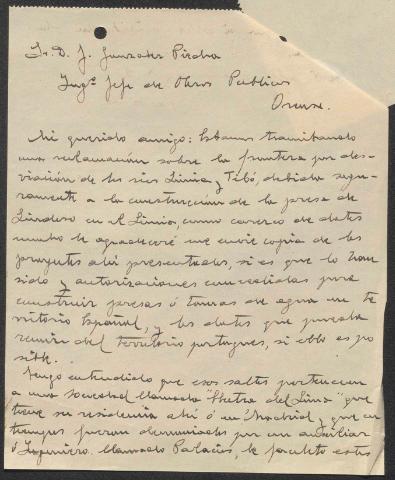 Sr. D. J. González Piedra
Ingº Jefe de Obras Publicas
Orense.
Mi querido amigo: Estamos tramitando
una reclamación sobre la frontera por des-
viación de los rios Limia y Tibó, debida segu-
ramente a la construccion de la presa de
Lindoso en el Limia, como carezco de datos
mucho le agradeceré me envie copia de los
proyectos ahi presentados, si es que lo han
sido y autorizaciones concedidas para
construir presas ó tomas de agua en te
rritorio Español, y los datos que pueda
reunir del territorio portugues, si ello es po
sible.
Tengo entendido que esos saltos pertenecen
a una sociedad llamada "Electra del Lima" que
tiene su residencia ahi ó en Madrid y que en
tiempos fueron denunciados por un auxiliar
ó Ingeniero llamado Palacios, le facilito estos